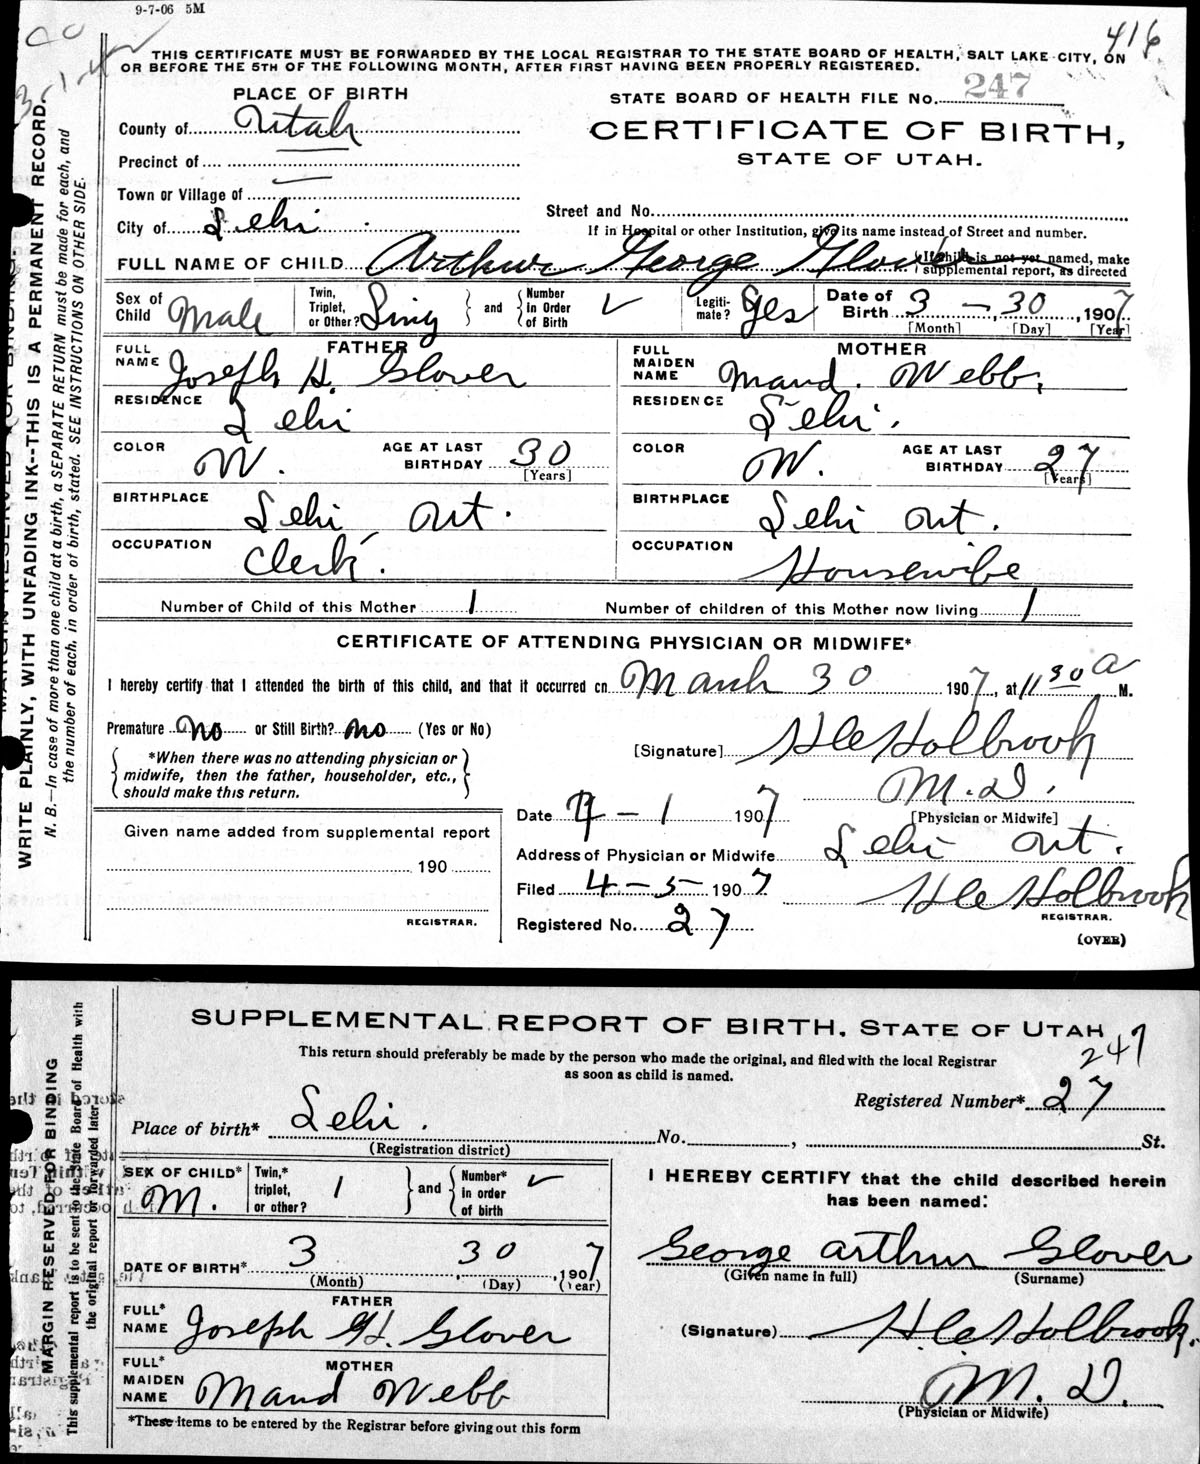 9-7-06 5M
416
THIS CERTIFICATE MUST BE FORWARDED BY THE LOCAL REGISTRAR TO THE STATE BOARD OF HEALTH, SALT LAKE CITY, ON
OR BEFORE THE 5TH OF THE FOLLOWING MONTH, AFTER FIRST HAVING BEEN PROPERLY REGISTERED.
PLACE OF BIRTH
STATE BOARD OF HEALTH FILE No. 247
County of Utah
CERTIFICATE OF BIRTH,
STATE OF UTAH.
Precinct of
Town or Village of
Street and No.
City of Lehi
If in Hospital or other Institution, give its name instead of Street and number.
FULL NAME OF CHILD Arthur George Glover
If child is not yet named, make
supplemental report, as directed
Sex of Child Male
Twin, Triplet, or Other? Sing and Number in Order of Birth ✓
Legitimate? Yes
Date of Birth 3 – 30, 1907
[Month] [Day] [Year]
FATHER
FULL NAME Joseph H. Glover
MOTHER
FULL MAIDEN NAME Maud. Webb,
RESIDENCE Lehi
RESIDENCE Lehi.
COLOR W. AGE AT LAST BIRTHDAY 30 [Years]
COLOR W. AGE AT LAST BIRTHDAY 27 [Years]
BIRTHPLACE Lehi Ut.
BIRTHPLACE Lehi Ut.
OCCUPATION Clerk.
OCCUPATION Housewife
Number of Child of this Mother 1
Number of children of this Mother now living 1
CERTIFICATE OF ATTENDING PHYSICIAN OR MIDWIFE*
I hereby certify that I attended the birth of this child, and that it occurred on March 30 1907, at 11 30 A M.
Premature No or Still Birth? No (Yes or No)
[Signature] H C Holbrook
M.D.
[Physician or Midwife]
*When there was no attending physician or
midwife, then the father, householder, etc.,
should make this return.
Date 4 – 1 1907
Given name added from supplemental report
190
REGISTRAR.
Address of Physician or Midwife Lehi Ut.
Filed 4 – 5 – 1907 H C Holbrook
REGISTRAR.
Registered No. 27
(OVER)
WRITE PLAINLY, WITH UNFADING INK--THIS IS A PERMANENT RECORD.
N. B.—In case of more than one child at a birth, a SEPARATE RETURN must be made for each, and
the number of each, in order of birth, stated. SEE INSTRUCTIONS ON OTHER SIDE.
SUPPLEMENTAL REPORT OF BIRTH, STATE OF UTAH
247
This return should preferably be made by the person who made the original, and filed with the local Registrar
as soon as child is named.
Registered Number* 27
Place of birth* Lehi. No. , St.
(Registration district)
SEX OF CHILD* M.
Twin,* triplet, or other? 1 and Number* in order of birth ✓
I HEREBY CERTIFY that the child described herein
has been named:
George Arthur Glover
(Given name in full) (Surname)
DATE OF BIRTH* 3 30, 1907
(Month) (Day) (Year)
FATHER
FULL* NAME Joseph H. Glover
(Signature) H.C. Holbrook.
MOTHER
FULL* MAIDEN NAME Maud Webb
M. D.
(Physician or Midwife)
*These items to be entered by the Registrar before giving out this form
MARGIN RESERVED FOR BINDING
This supplemental report is to be sent to the State Board of Health with
the original report or forwarded later